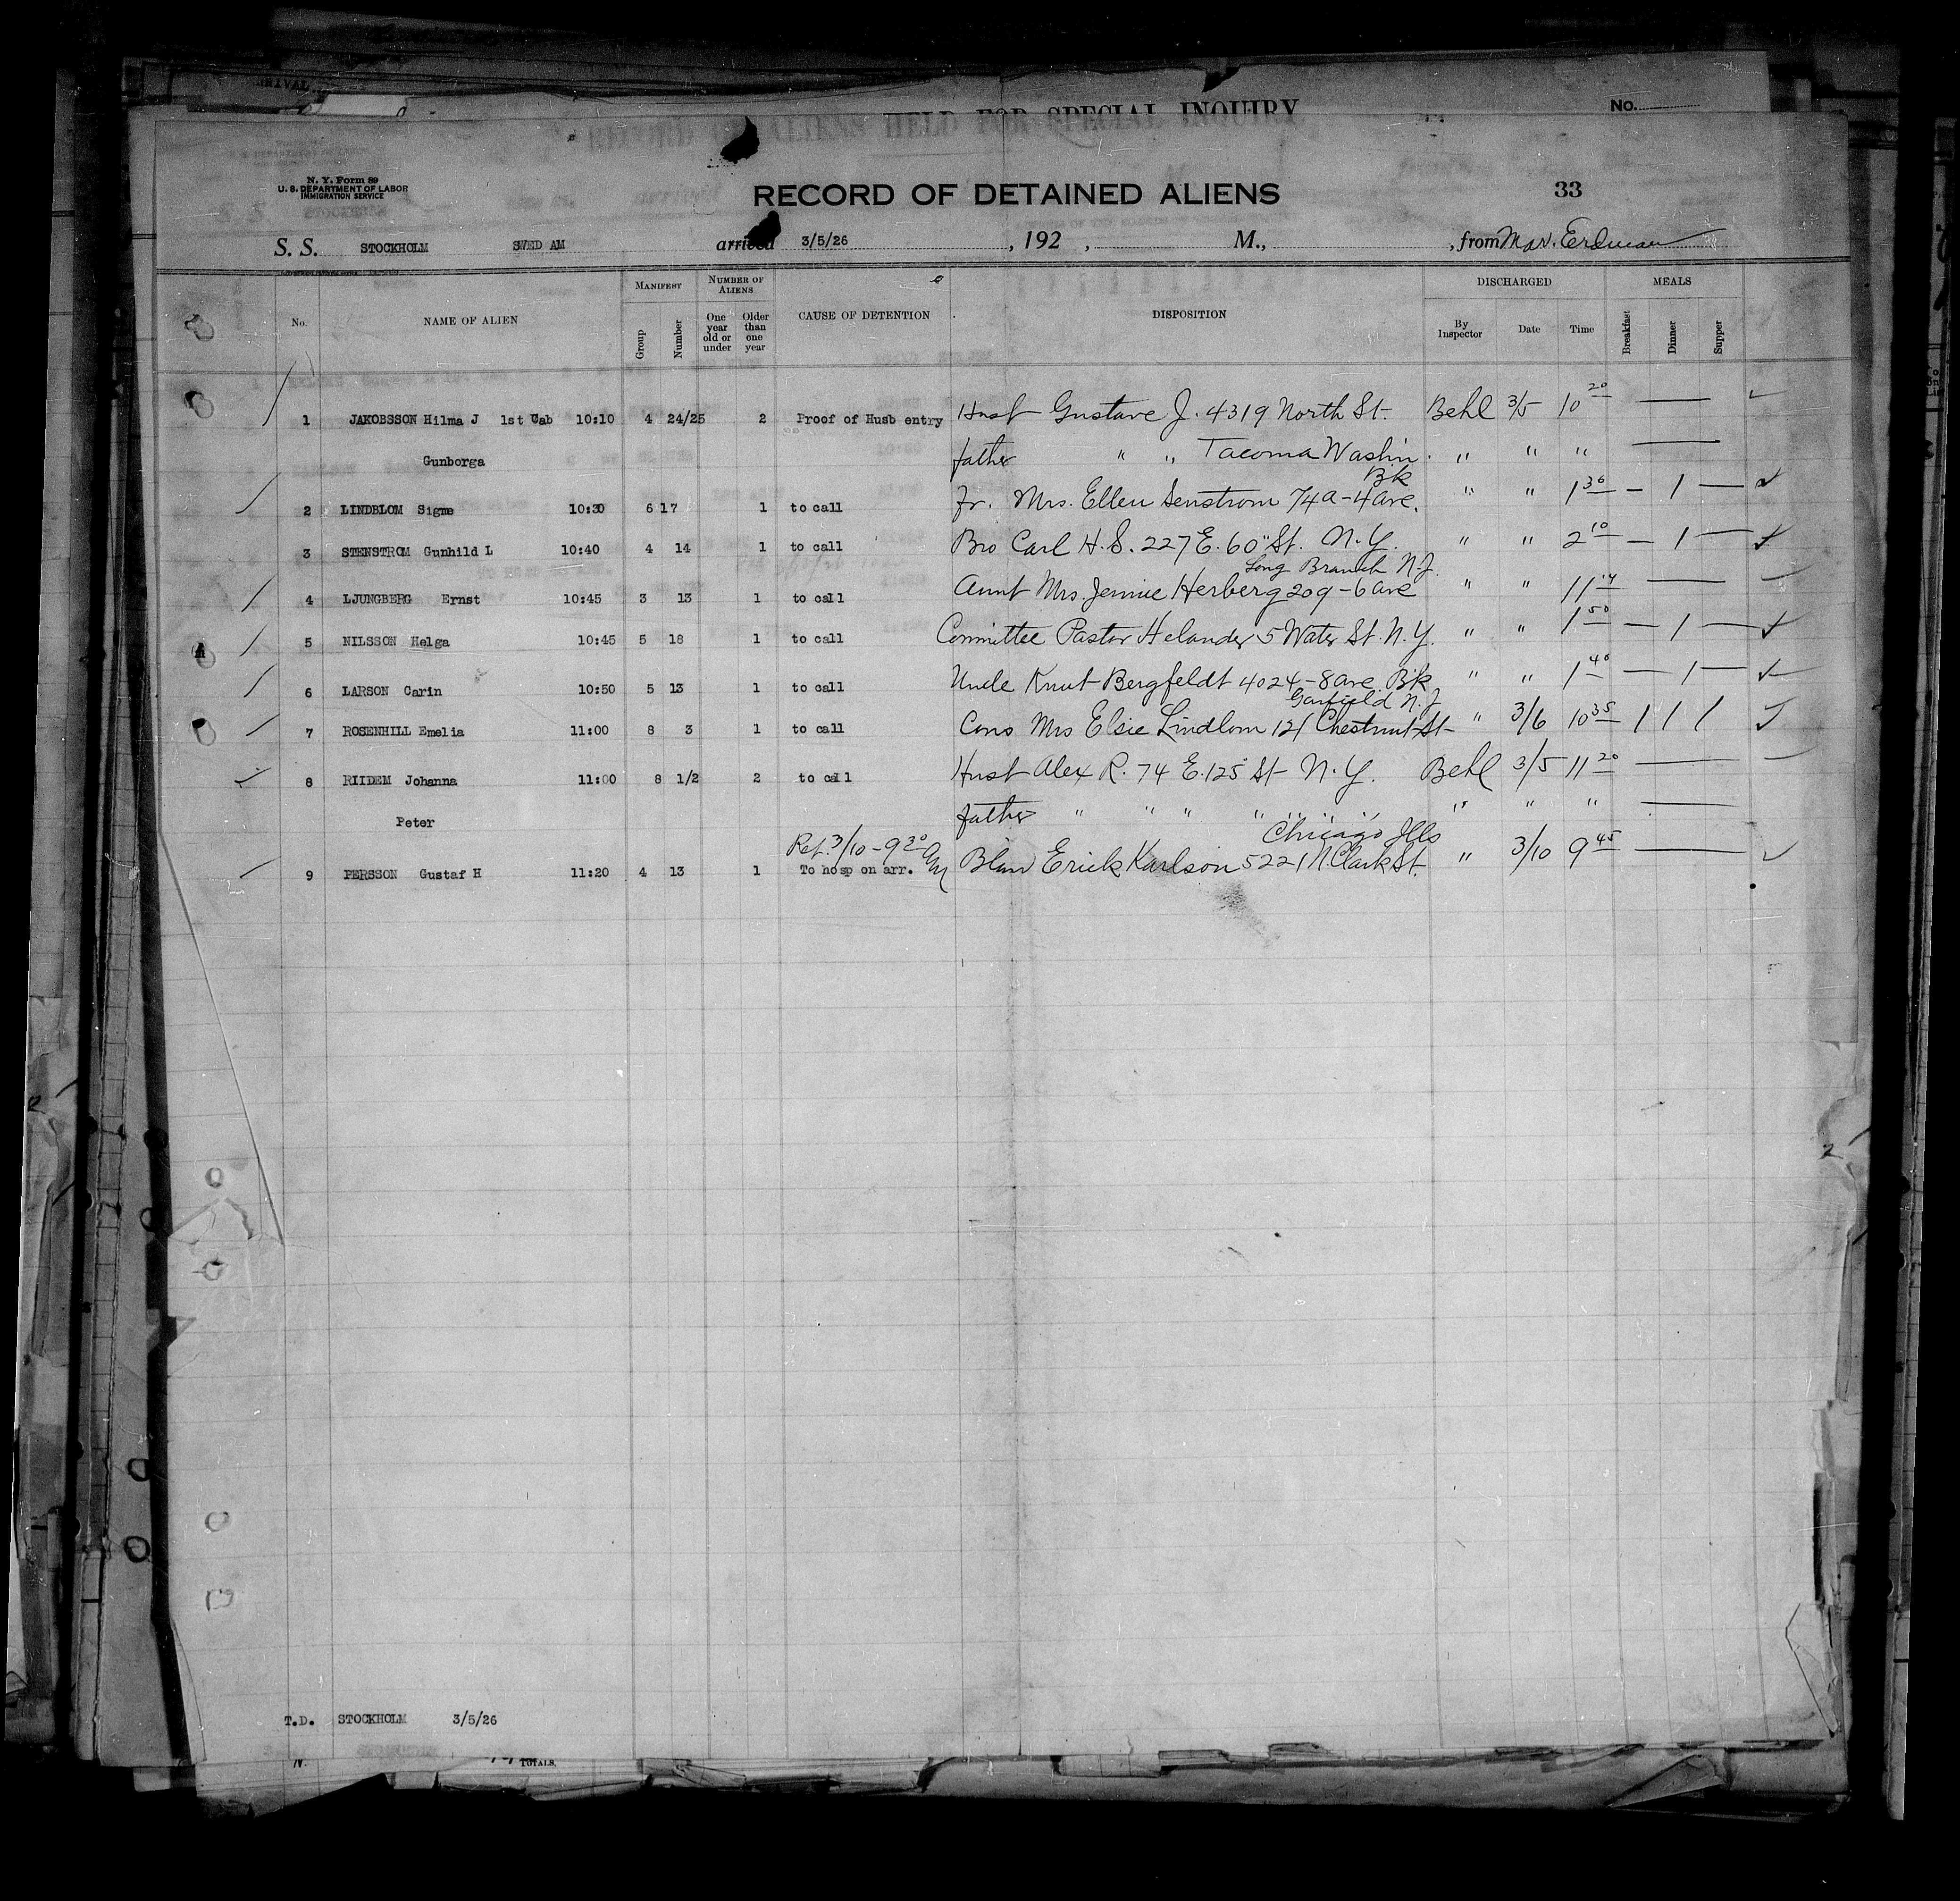 HELD FOR SPECIAL INQUIRY
No.
N. Y. Form 89
U. S. DEPARTMENT OF LABOR
IMMIGRATION SERVICE
RECORD OF DETAINED ALIENS
33
S. S. STOCKHOLM SWED AM arrived 3/5/26, 192 , M., , from Mar. Erdman
No. NAME OF ALIEN MANIFEST Group Number NUMBER OF ALIENS One year old or under Older than one year CAUSE OF DETENTION DISPOSITION DISCHARGED By Inspector Date Time MEALS Breakfast Dinner Supper
1 JAKOBSSON Hilma J 1st Cab 10:10 4 24/25 2 Proof of Husb entry Husb Gustave J. 4319 North St. Behl 3/5 10 20 —
Gunborga father " " Tacoma Washin. " " " —
Bk
2 LINDBLOM Signe 10:30 6 17 1 to call fr. Mrs. Ellen Senstrom 74a-4 ave. " " 1 30 — 1 —
3 STENSTROM Gunhild L 10:40 4 14 1 to call Bro Carl H. S. 227 E. 60" St. N.Y. " " 2 10 — 1 —
Long Branch N.J.
4 LJUNGBERG Ernst 10:45 3 13 1 to call Aunt Mrs. Jennie Herberg 209-6 ave " " 11 —
5 NILSSON Helga 10:45 5 18 1 to call Committee Pastor Helander 5 Water St. N.Y. " " 1 50 — 1 —
6 LARSON Carin 10:50 5 13 1 to call Uncle Knut Bergfeldt 4024-8 ave. Bk " " 1 40 — 1 —
Garfield N.J
7 ROSENHILL Emelia 11:00 8 3 1 to call Cous Mrs Elsie Lindlom 121 Chestnut St " 3/6 10 35 1 1 1
8 RIIDEM Johanna 11:00 8 1/2 2 to call Husb Alex R. 74 E. 125" St N.Y. Behl 3/5 11 20 —
Peter father " " " " " " " " " —
Ret. 3/10 - 9 30 AM Chicago Ills
9 PERSSON Gustaf H 11:20 4 13 1 To hosp on arr. Erick Karlson 5221 N. Clark St. " 3/10 9 45 —
T.D. STOCKHOLM 3/5/26
TOTALS.